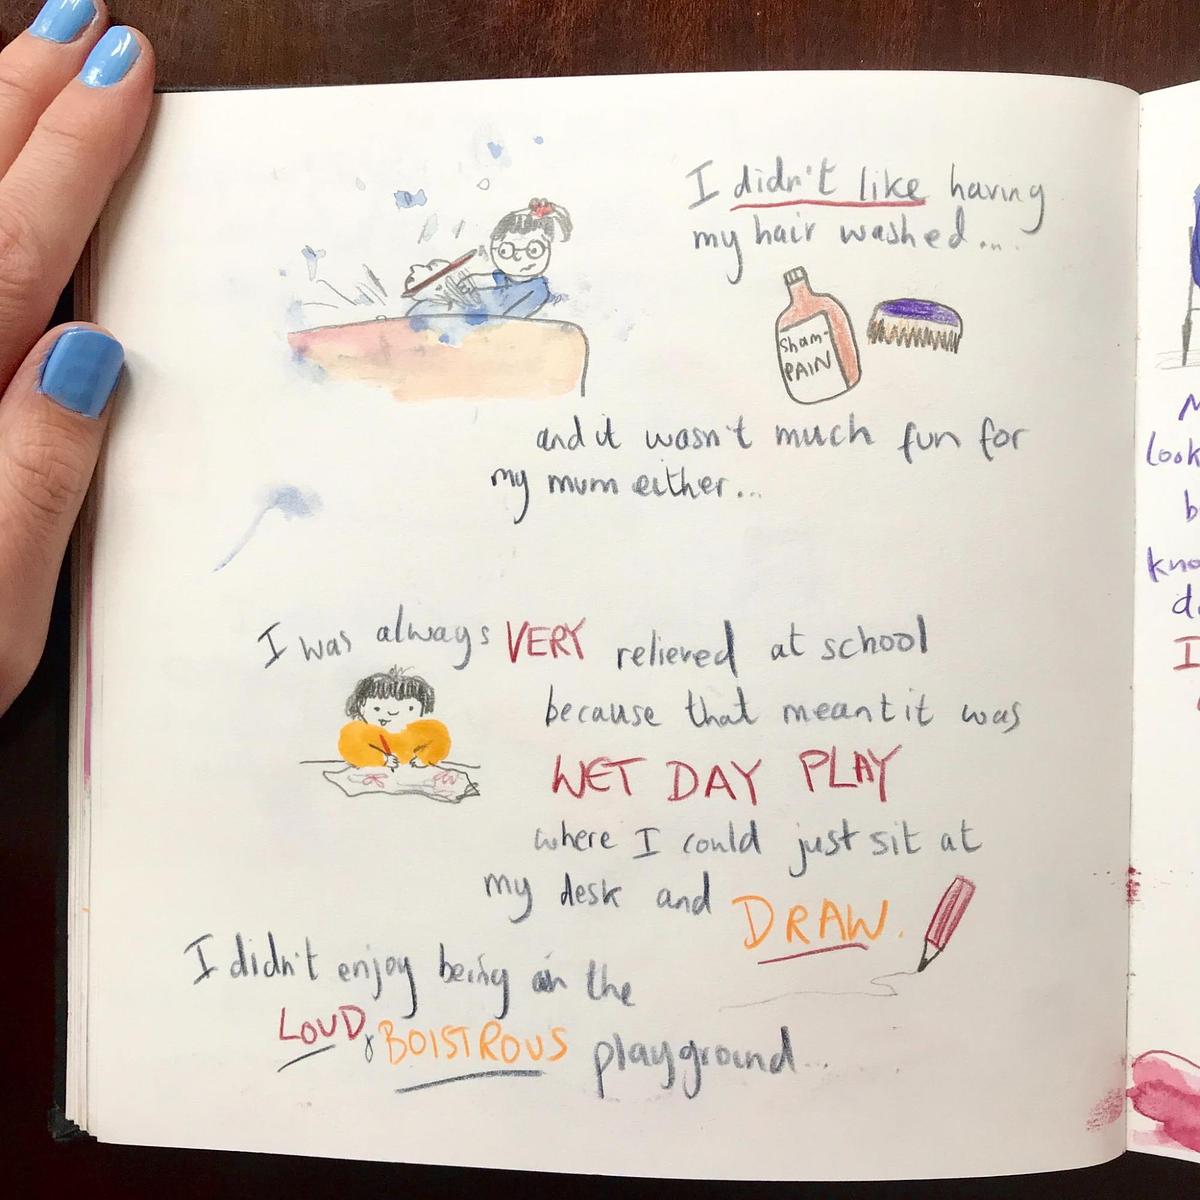 I didn't like having
my hair washed...
Sham-
PAIN
and it wasn't much fun for
my mum either...
I was always VERY relieved at school
because that meant it was
WET DAY PLAY
where I could just sit at
my desk and DRAW.
I didn't enjoy being in the
LOUD & BOISTROUS playground...
look
kno
I